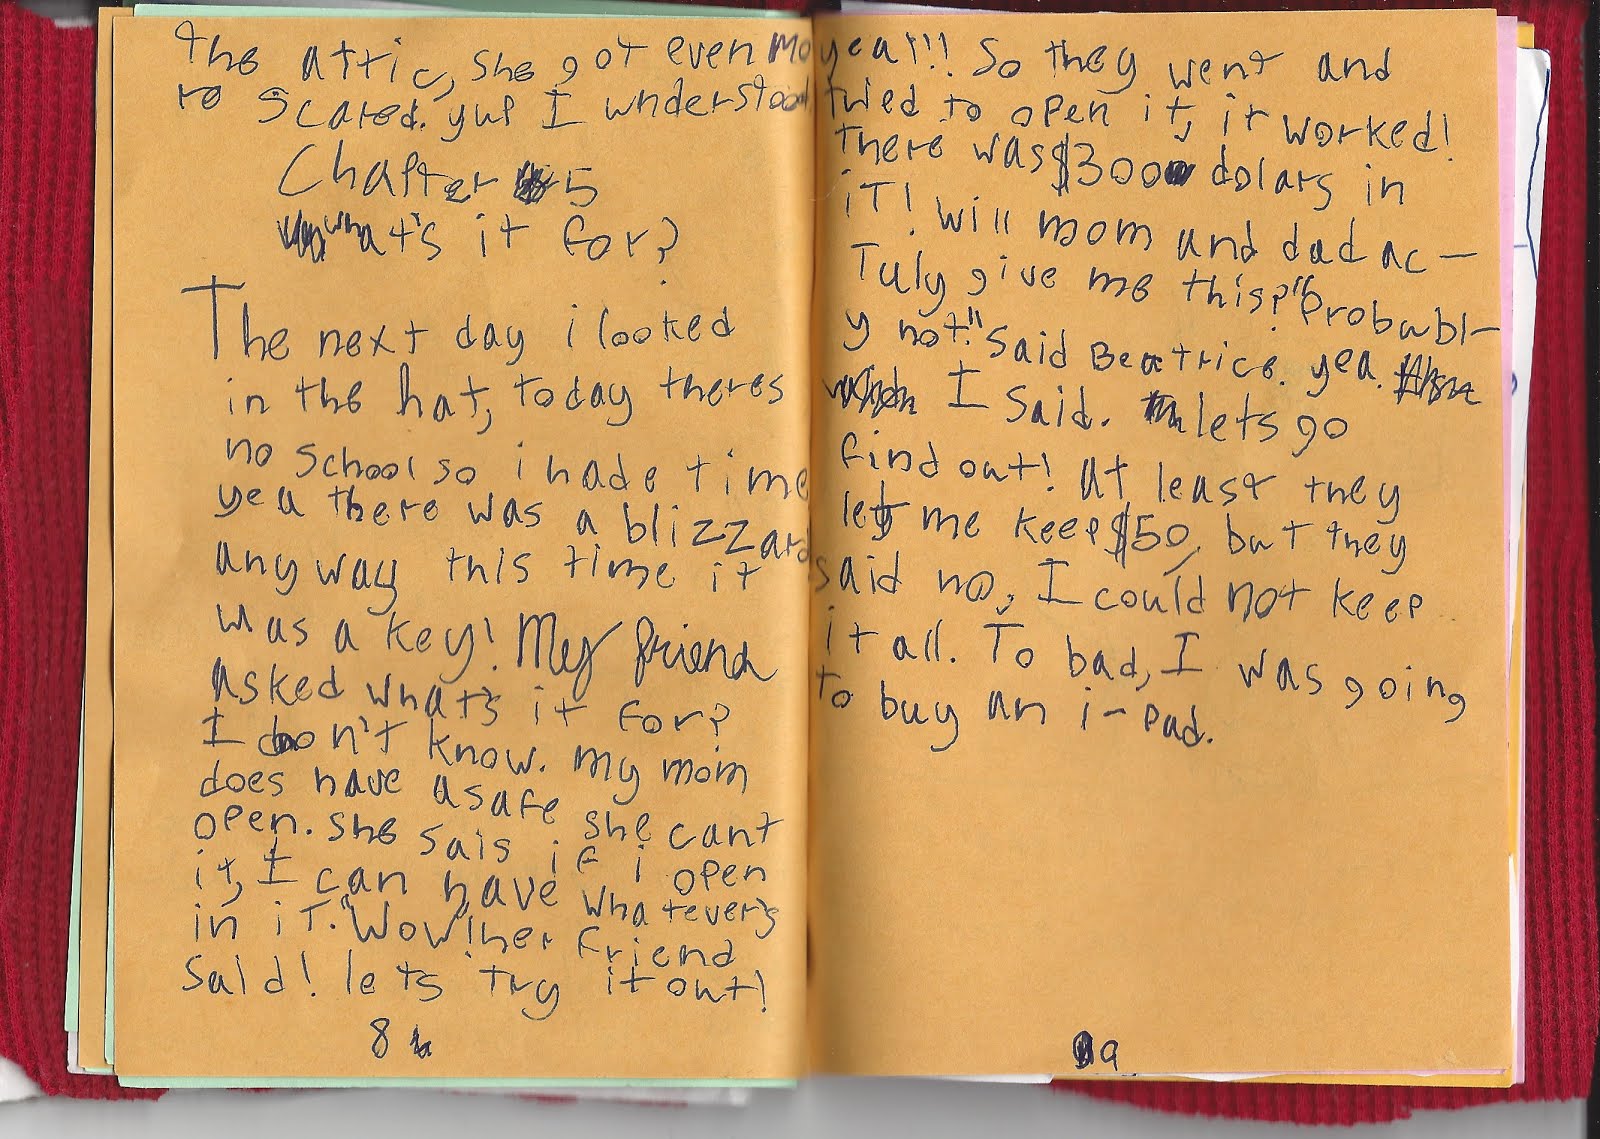 the attic, she got even mo
re scared. yup I understood
Chapter 5
what's it for?
The next day i looked
in the hat, today theres
no school so i hade time
yea there was a blizzard
any way this time it
was a key! My friend
asked what's it for?
I don't know. my mom
does have a safe she cant
open. she sais if i open
it, I can have whatever's
in iT. "Wow! her friend
Said! lets try it out!
8
yea!!! So they went and
tried to open it, it worked!
there was $300 dolars in
iT! Will mom and dad ac-
Tuly give me this? "Probabl-
y not." Said Beatrice. yea.
I Said. lets go
find out! At least they
let me keep $50, but they
said no, I could not keep
it all. To bad, I was going
to buy an i-pad.
9